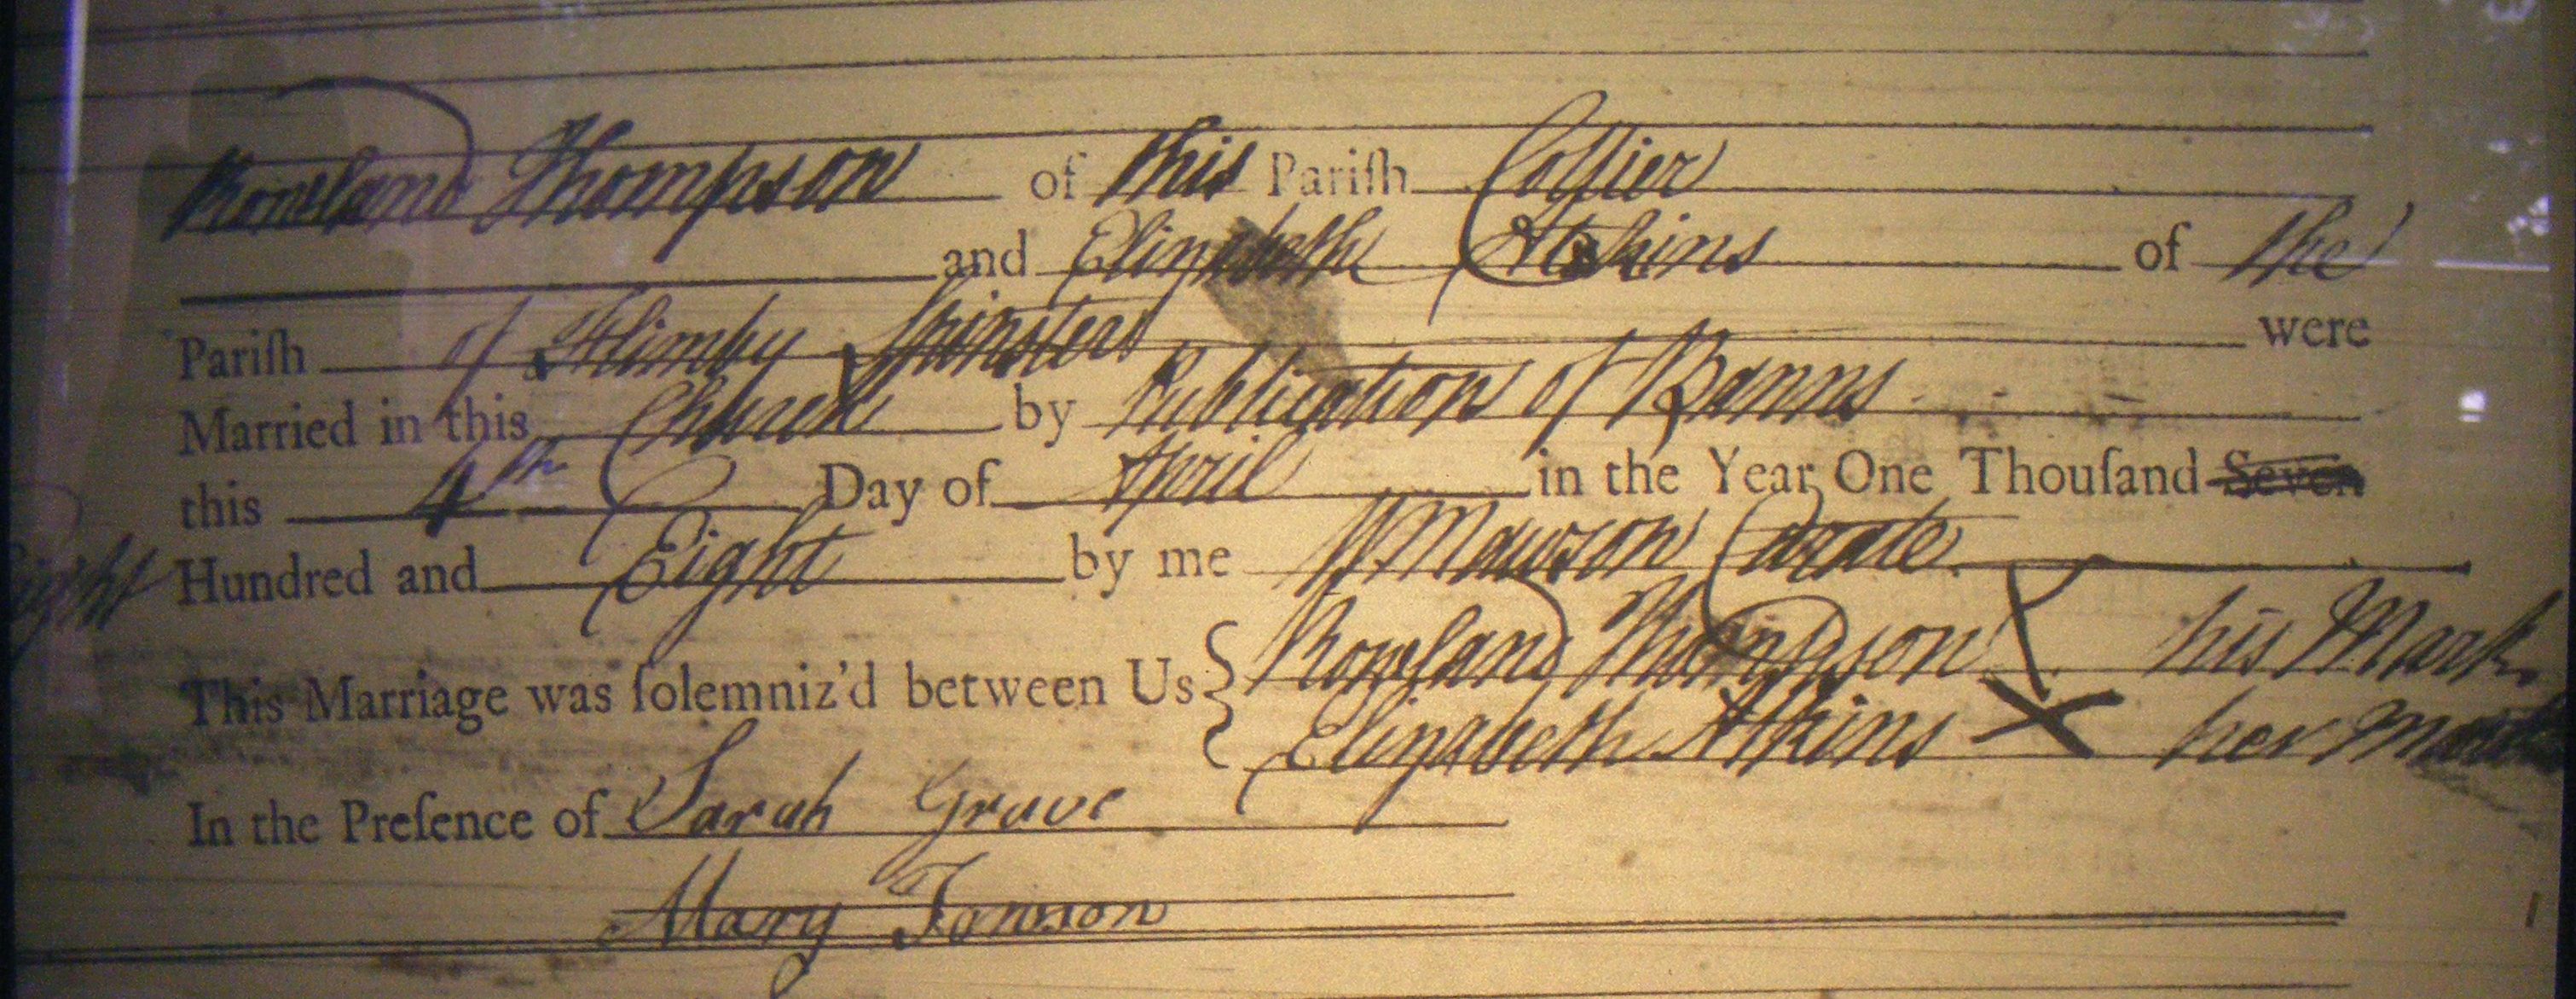 Rowland Thompson of this Pariſh Collier
and Elizabeth Atkins of the
Pariſh of Flimby Spinster were
Married in this Church by Publication of Banns
this 4th Day of April in the Year One Thouſand Seven
Eight Hundred and Eight by me W Mawson Curate
This Marriage was ſolemniz'd between Us { Rowland Thompson X his Mark
Elizabeth Atkins X her Mark
In the Preſence of Sarah Grave
Mary